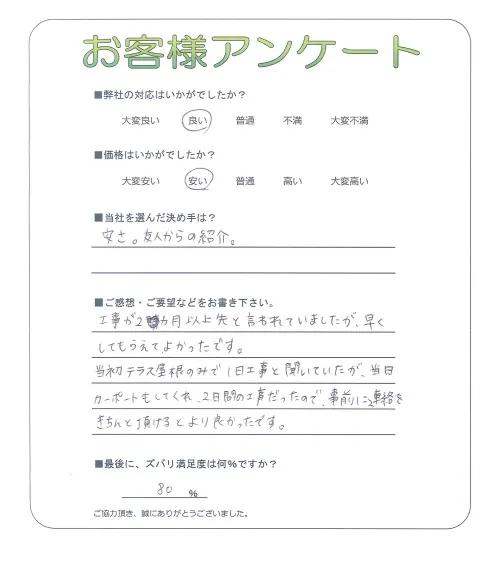 お客様アンケート
■弊社の対応はいかがでしたか？
大変良い 良い 普通 不満 大変不満
■価格はいかがでしたか？
大変安い 安い 普通 高い 大変高い
■当社を選んだ決め手は？
安さ。友人からの紹介。
■ご感想・ご要望などをお書き下さい。
工事が2ヵ月以上先と言われていましたが、早く
してもらえてよかったです。
当初テラス屋根のみで1日工事と聞いていたが、当日
カーポートもしてくれ、2日間の工事だったので、事前に連絡を
きちんと頂けるとより良かったです。
■最後に、ズバリ満足度は何%ですか？
80 %
ご協力頂き、誠にありがとうございました。